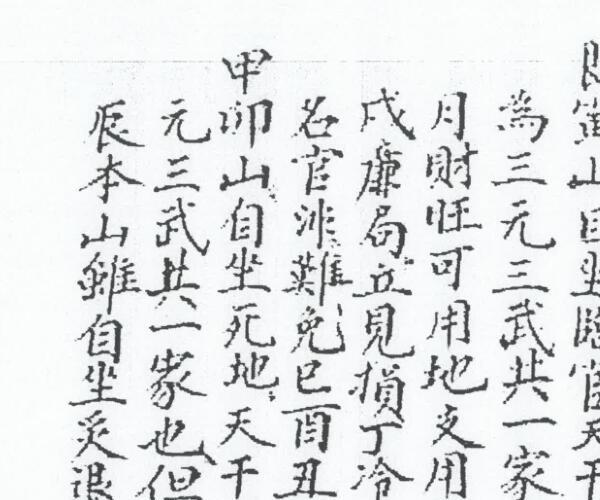 寅山自坐臨官天干
為三元三武共一家
月財旺可用地支用
戌廉局立見損丁冷
若官非難免巳酉丑
甲卯山自坐死地天干
元三武共一家也但
辰本山雖自坐災退